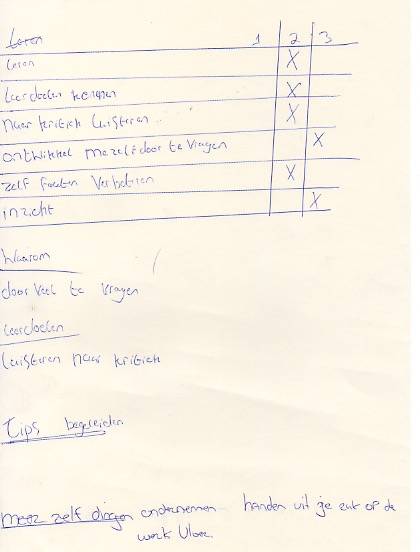 Leren 1 2 3
leren X
leerdoelen kennen X
naar kritich luisteren X
ontwikkel mezelf door te vragen X
zelf fouten verbetren X
inzicht X
Waarom
door veel te vragen
leerdoelen
luisteren naar kritich
Tips begeleider
meer zelf dingen ondernemen handen uit je zak op de
werk vloer.